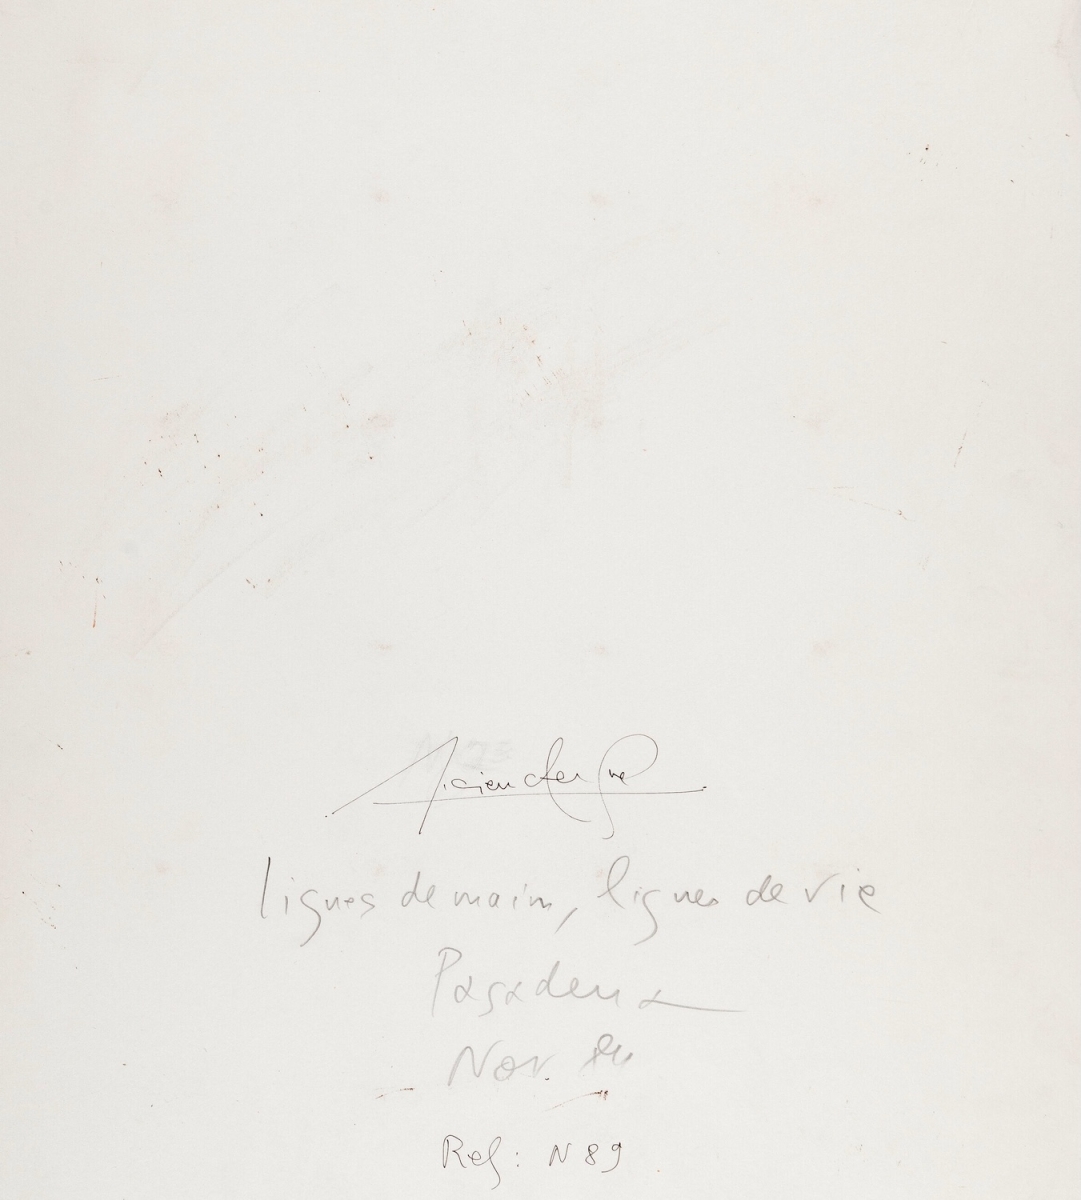 Lucien Clergue
lignes de main, lignes de vie
Pasadena
Nov. 84
Ref: N 89